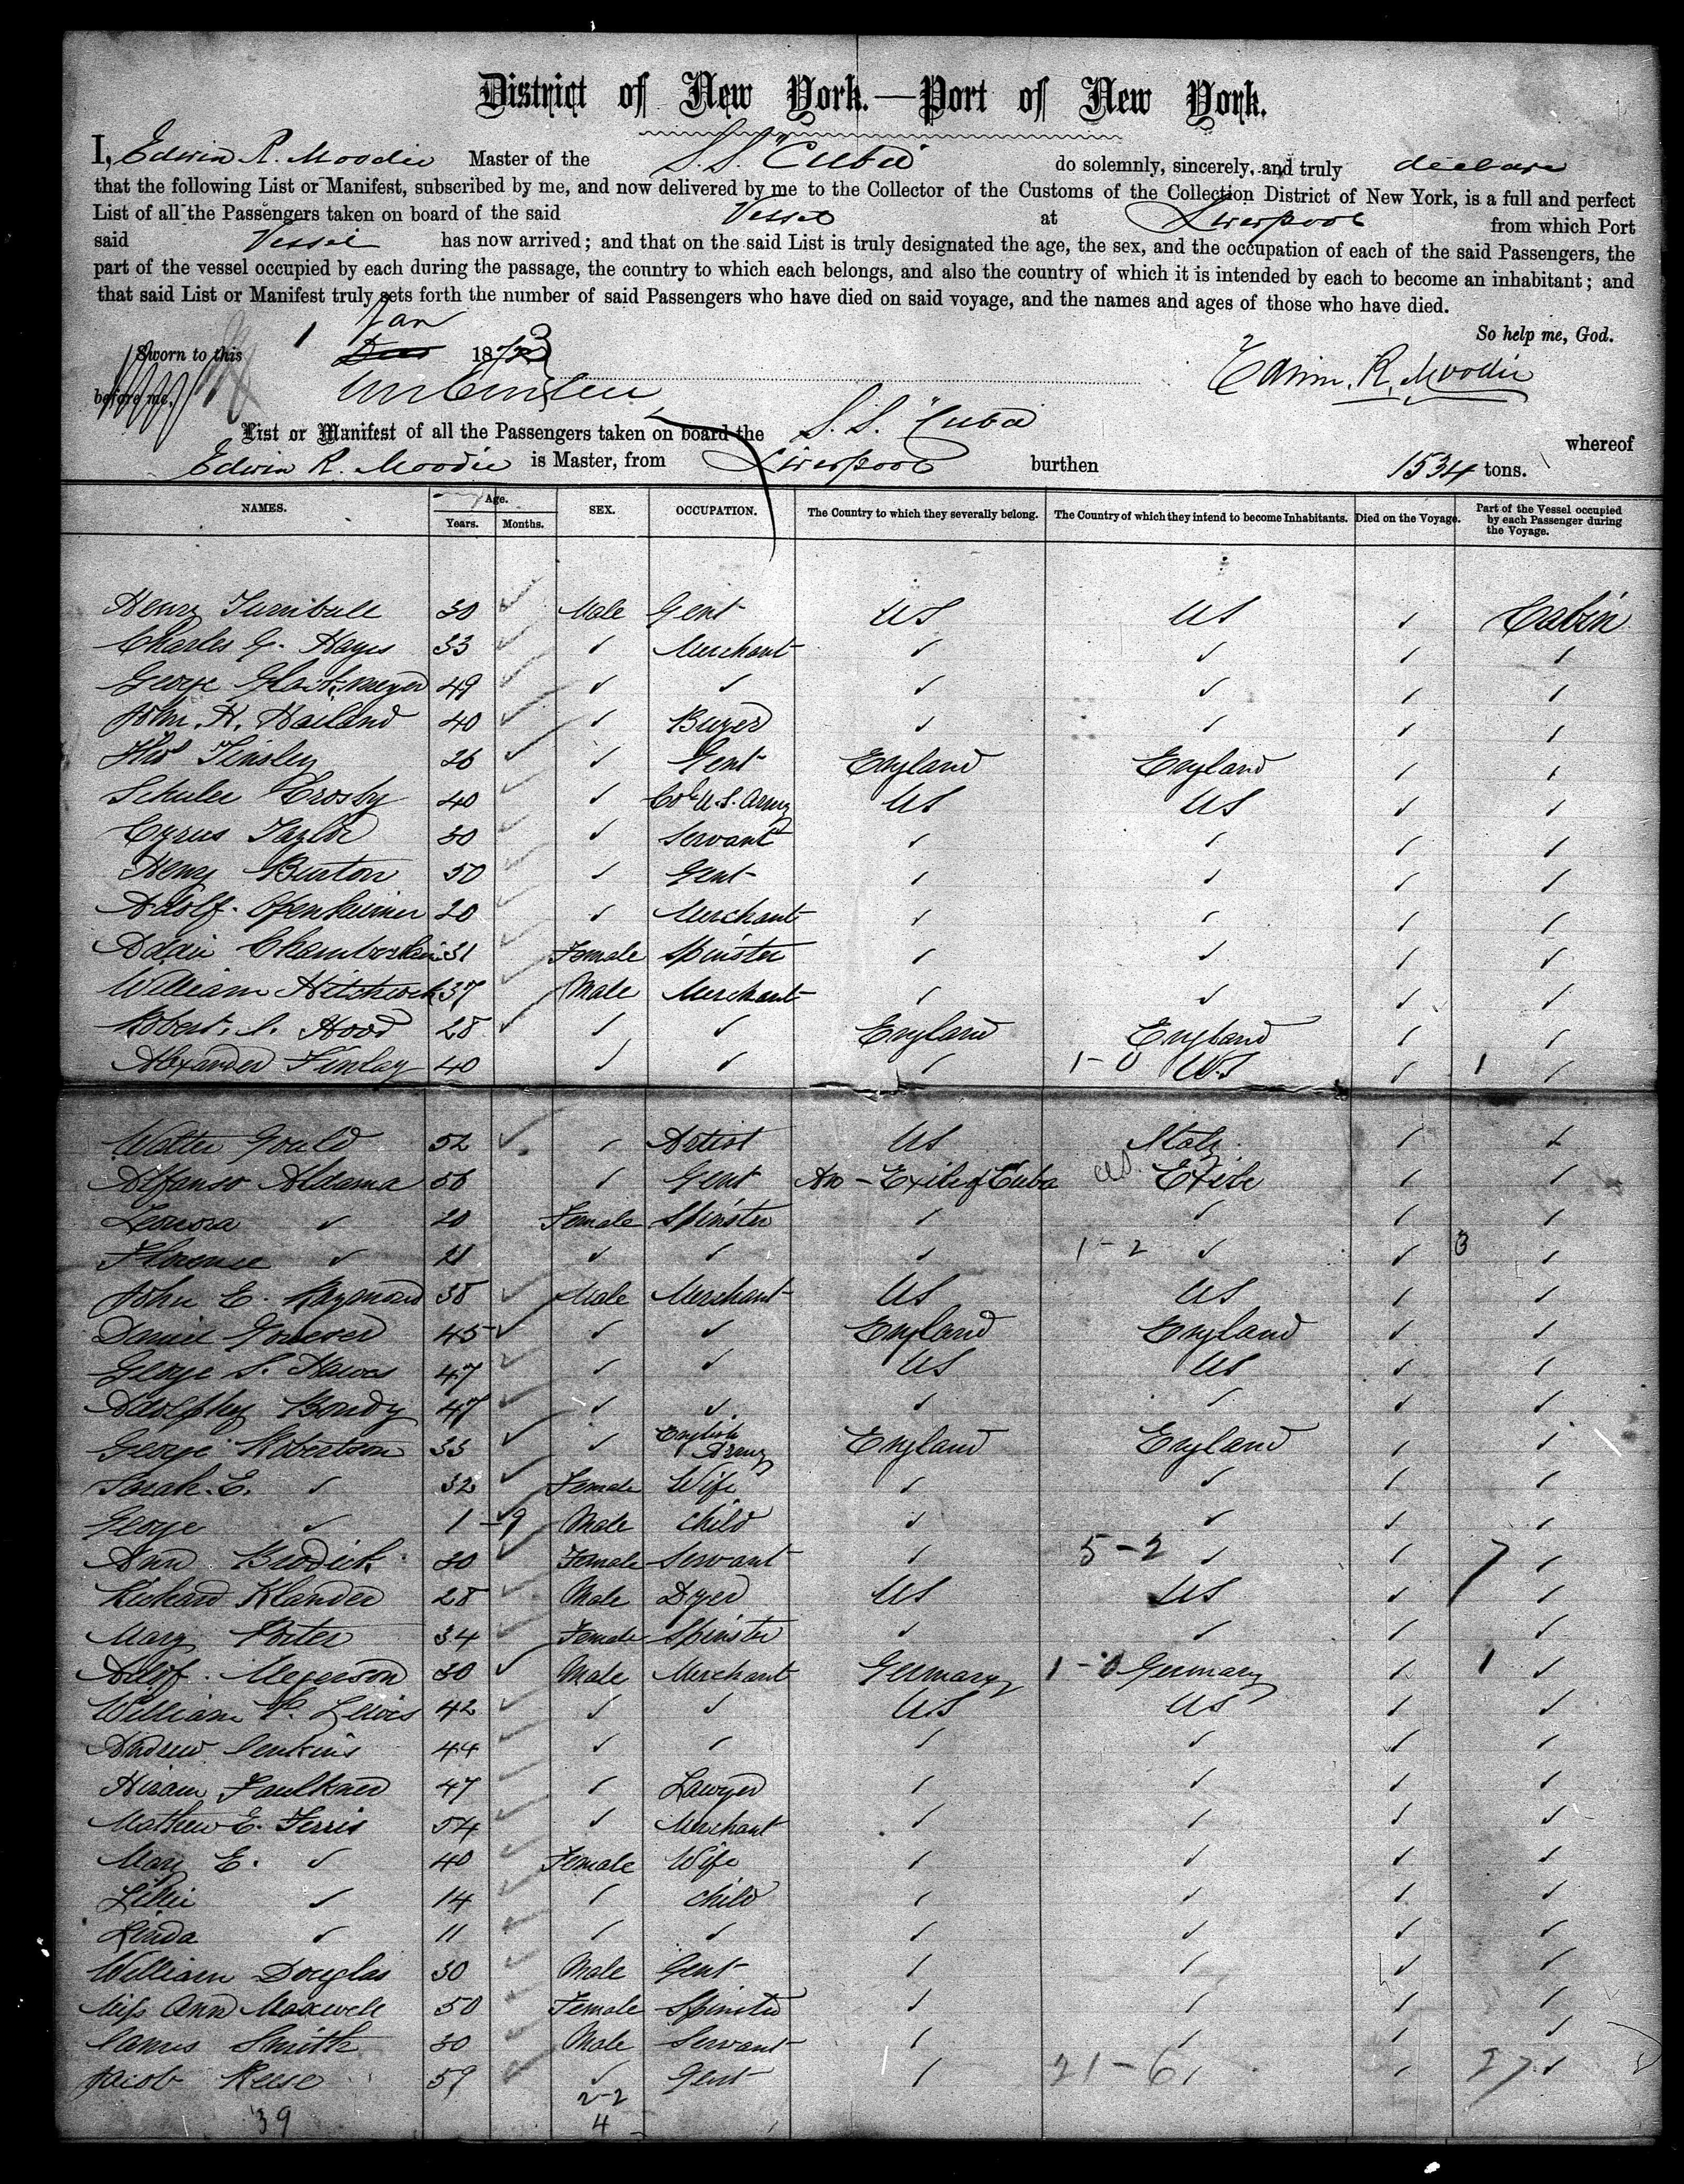 District of New York.—Port of New York.
I, Edwin R. Moodie Master of the S.S. "Cuba" do solemnly, sincerely, and truly declare
that the following List or Manifest, subscribed by me, and now delivered by me to the Collector of the Customs of the Collection District of New York, is a full and perfect
List of all the Passengers taken on board of the said Vessel at Liverpool from which Port
said Vessel has now arrived; and that on the said List is truly designated the age, the sex, and the occupation of each of the said Passengers, the
part of the vessel occupied by each during the passage, the country to which each belongs, and also the country of which it is intended by each to become an inhabitant; and
that said List or Manifest truly sets forth the number of said Passengers who have died on said voyage, and the names and ages of those who have died.
So help me, God.
Sworn to this 1 Jan 1873
before me, Edwin. R. Moodie
List or Manifest of all the Passengers taken on board the S.S. "Cuba" whereof
Edwin R. Moodie is Master, from Liverpool burthen 1534 tons.
NAMES. Age. Years. Months. SEX. OCCUPATION. The Country to which they severally belong. The Country of which they intend to become Inhabitants. Died on the Voyage. Part of the Vessel occupied by each Passenger during the Voyage.
Henry Turnbull 30 Male Gent US US Cabin
Charles G. Hayes 33 Merchant
George 49
John. H. Hailand 40 Buyer
Thos Tinsley 26 Gent England England
Schuler Crosby 40 Col U.S. Army US US
Cyrus Taylor 30 Servant
Henry Burton 50 Gent
Adolf. Openheimer 20 Merchant
Addie Chamberlain 31 Female Spinster
William Hitchcock 37 Male Merchant
Robert. S. Hood 28 England England
Alexander Finlay 40 1-0 US 1
Walter Gould 52 Artist US Italy
Alfonso Aldama 56 Gent An - Exile of Cuba US. Exile
Leonora 20 Female Spinster
Florence 21 1-2 3
John E. Raymond 38 Male Merchant US US
Daniel 45 England England
George S. Hawes 47 US US
Adolphy Bondy 47
George Robertson 33 English Army England England
Sarah. E. 32 Female Wife
George 1-9 Male Child
Ann Brodick 30 Female Servant 5-2 7
Richard Klander 28 Male Dyer US US
Mary Porter 34 Female Spinster
Adof. Meyerson 30 Male Merchant Germany 1-0 Germany 1
William P. Lewis 42 US US
Andrew Jenkins 44
Hiram Faulkner 47 Lawyer
Mathew E. Ferris 54 Merchant
Mary E. 40 Female Wife
Lillie 14 Child
Linda 11
William Douglas 30 Male Gent
Miss Ann Maxwell 50 Female Spinster
James Smith 30 Male Servant
Jacob Reese 59 Gent 21-6 27
39 2-2
4